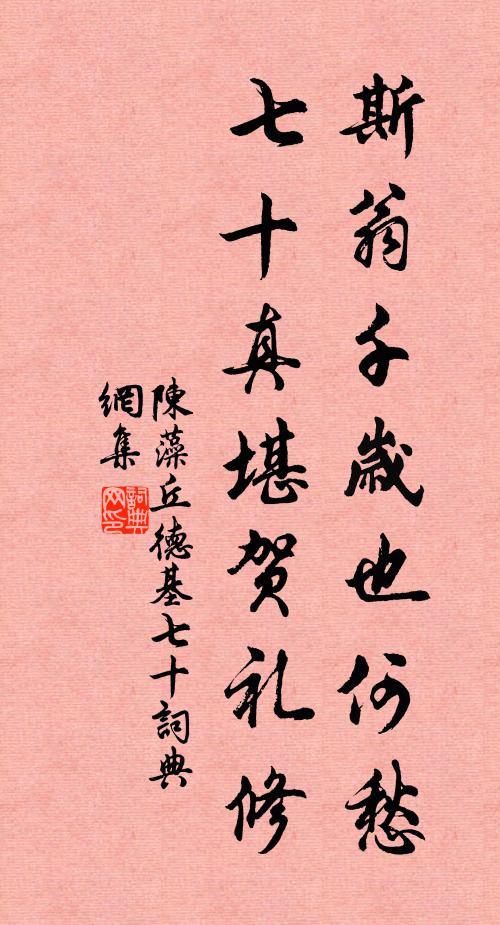 斯翁千歲也何愁
七十真堪贺礼修
陳藻丘德基七十詞典
網集
詞典网印